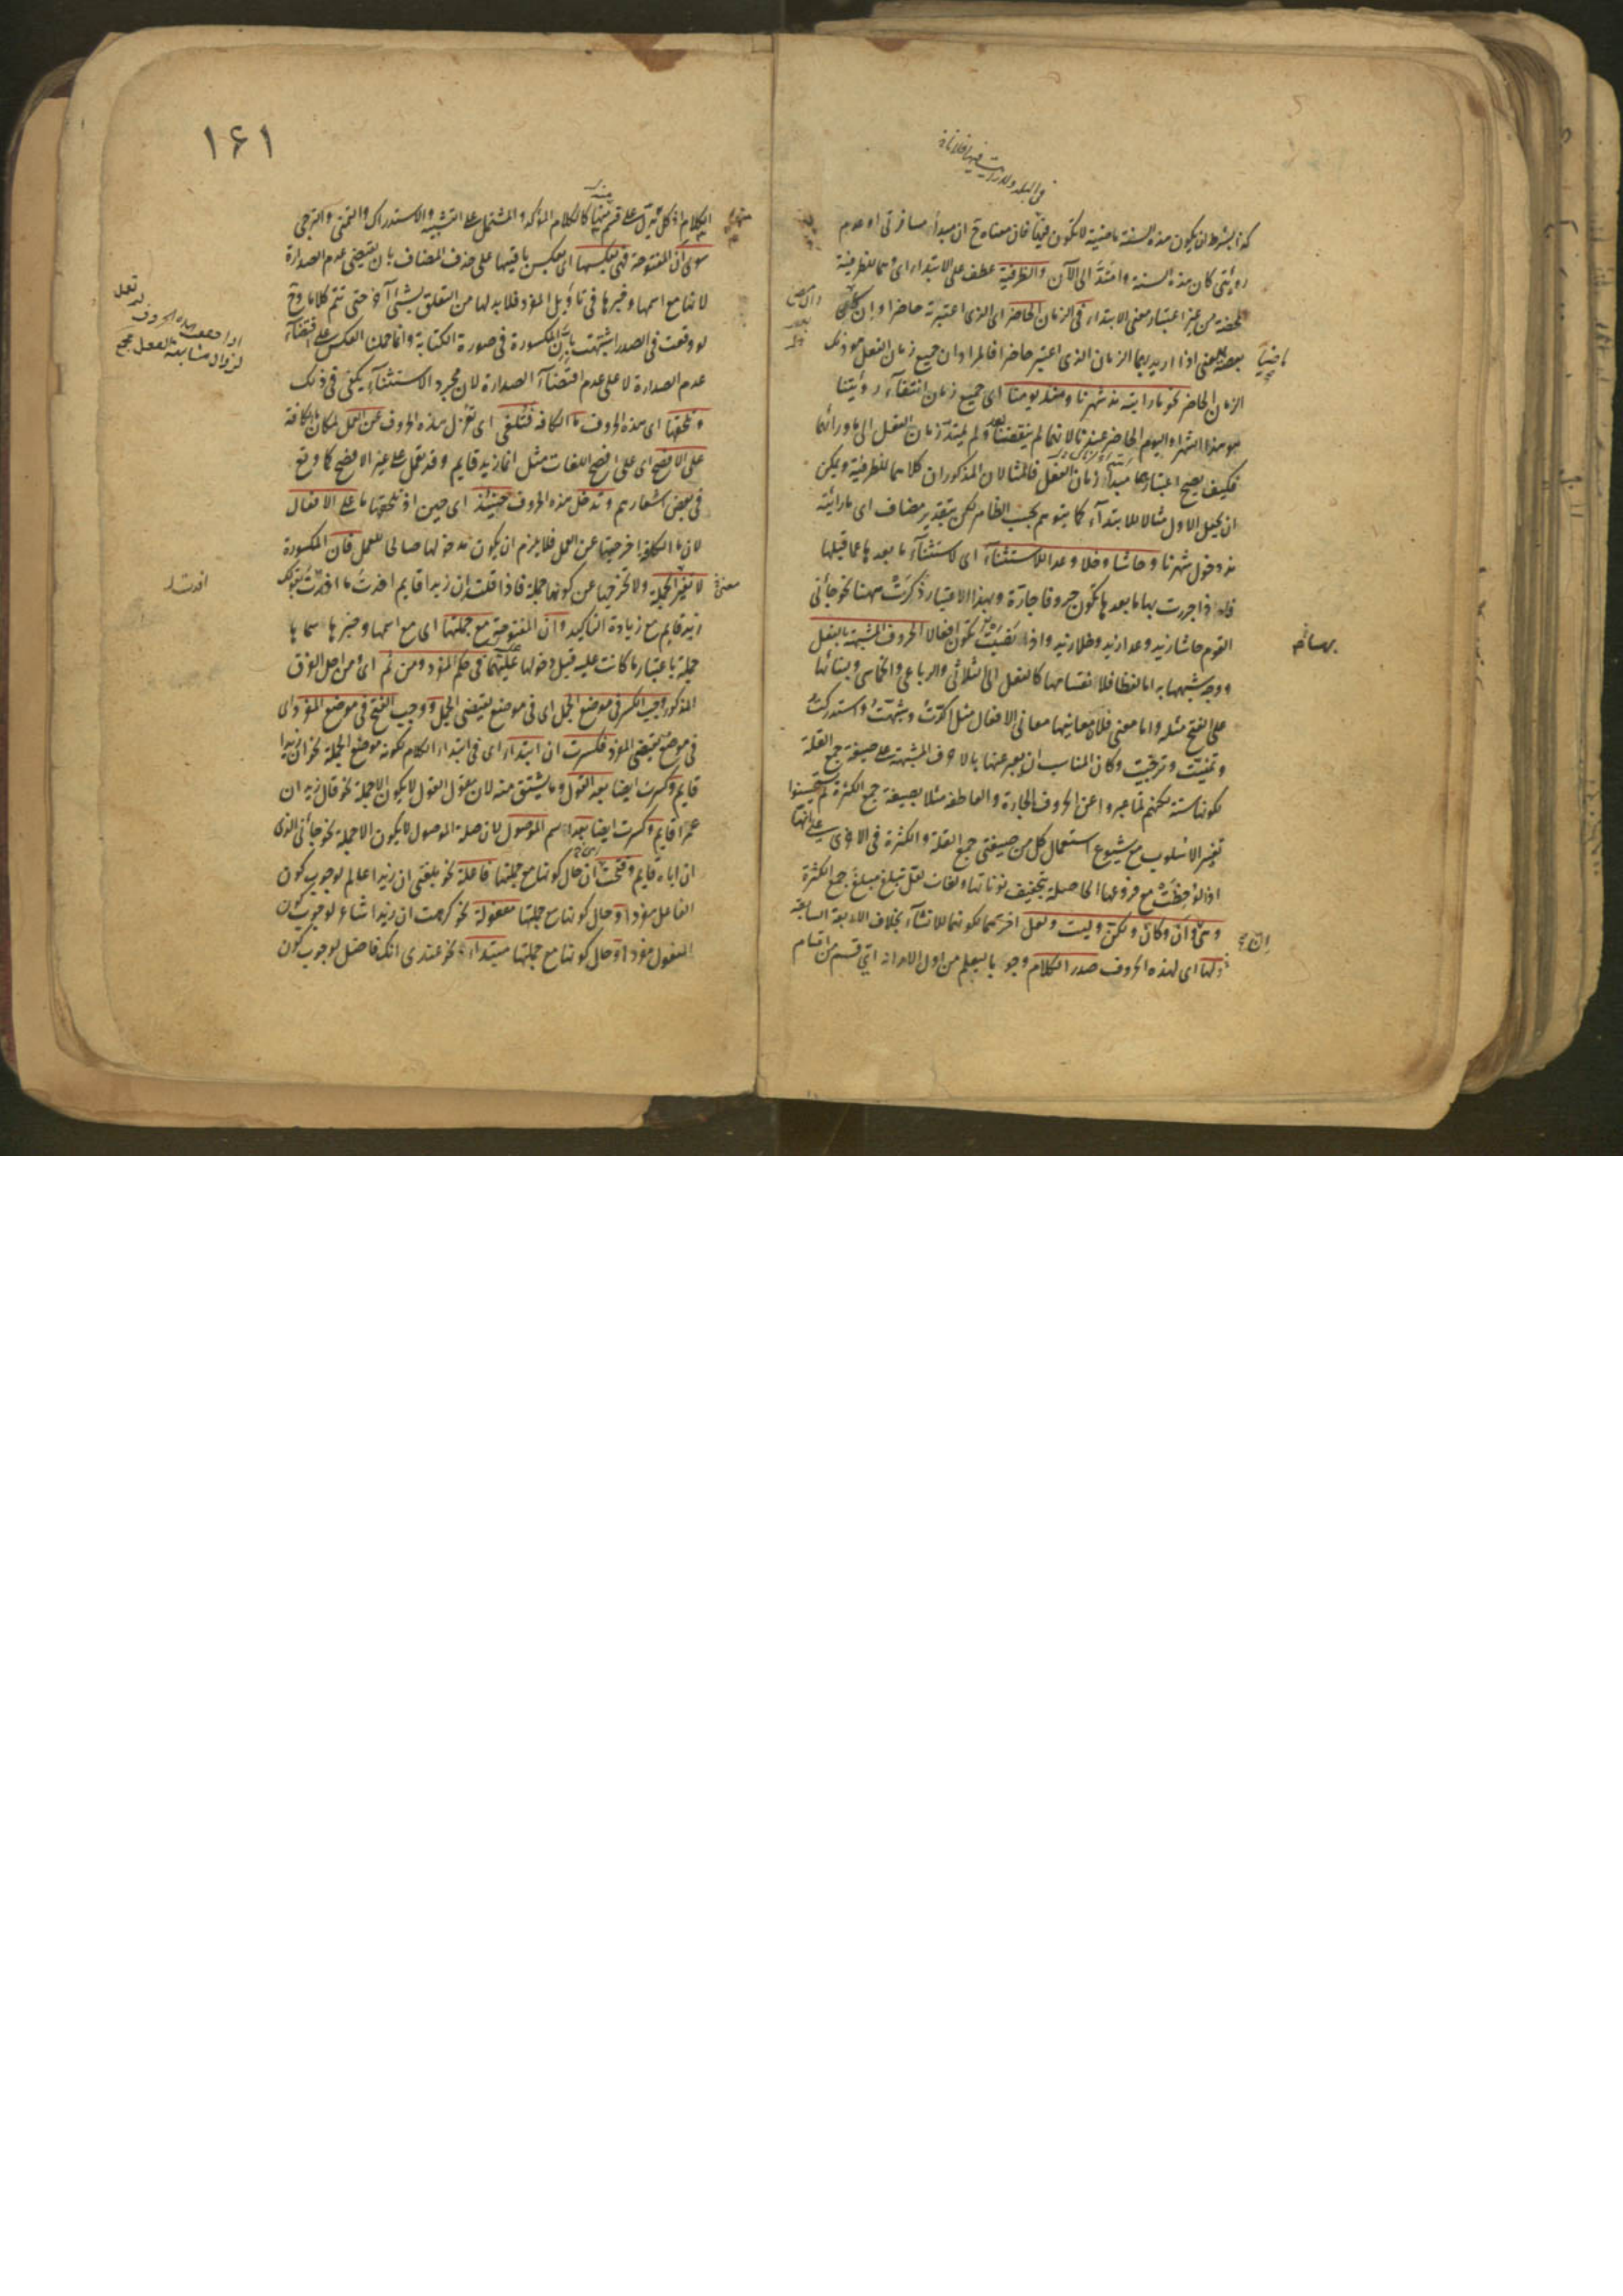 كذا بشرط ان يكون هذه السنة ماضية لا تكون فيها فان معناه ح ان مبدأ مسافرتى او عدم
رؤيتى كان هذه السنة وامتد الى الآن والظرفية عطف على الابتداء اى وهما للظرفية
المحضة من غير اعتبار معنى الابتداء فى الزمان الحاضر اى الذى اعتبرته حاضرا وان
بعضه يعنى اذا اريد بهما الزمان الذى اعتبر حاضرا فالمراد ان جميع زمان الفعل هو ذلك
ماضيا
الزمان الحاضر نحو ما رايته مذ شهرنا ومنذ يومنا اى جميع زمان انتفاء رؤيتنا
هو هذا الشهر او اليوم الحاضر عندنا لانهما لم ينقضيا بعد ولم يمتد زمان الفعل الى ما ورائهما
فكيف يصح اعتبارهما مبدأ زمان الفعل فالمثالان المذكوران كلاهما للظرفية ويمكن
ان يجعل الاول مثالا للابتدآء كما يتوهم بحسب الظاهر لكن بتقدير مضاف اى ما رايته
مذ دخول شهرنا وحاشا وخلا وعدا للاستثناء اى لاستثنآء ما بعدها عما قبلها
فاذا جررت بها ما بعدها تكون حروفا جارة وبهذا الاعتبار ذكرت ههنا نحو جائنى
القوم حاشا زيد وعدا زيد وخلا زيد واذا نصبت تكون افعالا الحروف المشبهة بالفعل
ووجه شبهها به اما لفظا فلانقسامها كالفعل الى الثلاثى والرباعى والخماسى وبنائها
على الفتح مثله واما معنى فلان معانيها معانى الافعال مثل اكدت وشبهت واستدركت
وتمنيت وترجيت وكان المناسب ان يعبر عنها بالاحرف المشبهة على صيغة جمع القلة
لكونها ستة لكنهم لما عبروا عن الحروف الجارة والعاطفة مثلا بصيغة جمع الكثرة لم يستحسنوا
تغيير الاسلوب مع شيوع استعمال كل من صيغتى جمع القلة والكثرة فى الاخرى على انها
اذا لوحظت مع فروعها الحاصلة بتخفيف نوناتها ولغات لعل تبلغ مبلغ جمع الكثرة
وهى ان وان وكان ولكن وليت ولعل اخرهما لكونهما للانشآء بخلاف الاربعة السابقة
ولها اى لهذه الحروف صدر الكلام وجوبا ليعلم من اول الامر انه اى قسم من اقسام
١٦١
الكلام اذ كل تدل على قسم منها كالكلام المؤكد والمشتمل على التشبيه والاستدراك والتمنى والترجى
سوى ان المفتوحة فهى بعكسها اى بعكس باقيها على حذف المضاف بان تقتضى عدم الصدارة
لانها مع اسمها وخبرها فى تاويل المفرد فلا بد لها من التعلق بشىء آخر حتى تتم كلاما وح
لو وقعت فى الصدر اشتبهت بان المكسورة فى صورة الكتابة وانما حملنا العكس على اقتضآء
عدم الصدارة لا على عدم اقتضآء الصدارة لان مجرد الاستثنآء يكفى فى ذلك
وتلحقها اى هذه الحروف ما الكافة فتلغى اى تعزل هذه الحروف عن العمل لمكان ما الكافة
على الافصح اى على افصح اللغات مثل انما زيد قايم وقد تعمل على غير الافصح كما وقع
فى بعض اشعارهم وتدخل هذه الحروف حينئذ اى حين اذ تلحقها ما على الافعال
لان ما الكافة اخرجتها عن العمل فلا يلزم ان يكون مدخولها صالحا للعمل فان المكسورة
لا تغير معنى الجملة ولا تخرجها عن كونها جملة فاذا قلت ان زيدا قايم افدت ما افدت بقولك
افدت
زيد قايم مع زيادة التاكيد وان المفتوحة مع جملتها اى مع اسمها وخبرها سماها
جملة باعتبار ما كانت عليه قبل دخولها عليهما فى حكم المفرد ومن ثم اى ومن اجل الفرق
المذكور وجب الكسر فى موضع الجمل اى فى موضع يقتضى الجمل ووجب الفتح فى موضع المفرد اى
فى موضع يقتضى المفرد فكسرت ان ابتداء اى فى ابتداء الكلام لكونه موضع الجملة نحو ان زيدا
قايم وكسرت ايضا بعد القول وما يشتق منه لان مقول القول لا يكون الا جملة نحو قال زيد ان
عمرا قايم وكسرت ايضا بعد اسم الموصول لان صلة الموصول لا يكون الا جملة نحو جائنى الذى
ان اباه قايم وفتحت ان حال كونها مع جملتها فاعلة نحو بلغنى ان زيدا عالم لوجوب كون
الفاعل مفردا وحال كونها مع جملتها مفعولة نحو كرهت ان زيدا شاعر لوجوب كون
المفعول مفردا وحال كونها مع جملتها مبتداءة نحو عندى انك فاضل لوجوب كون